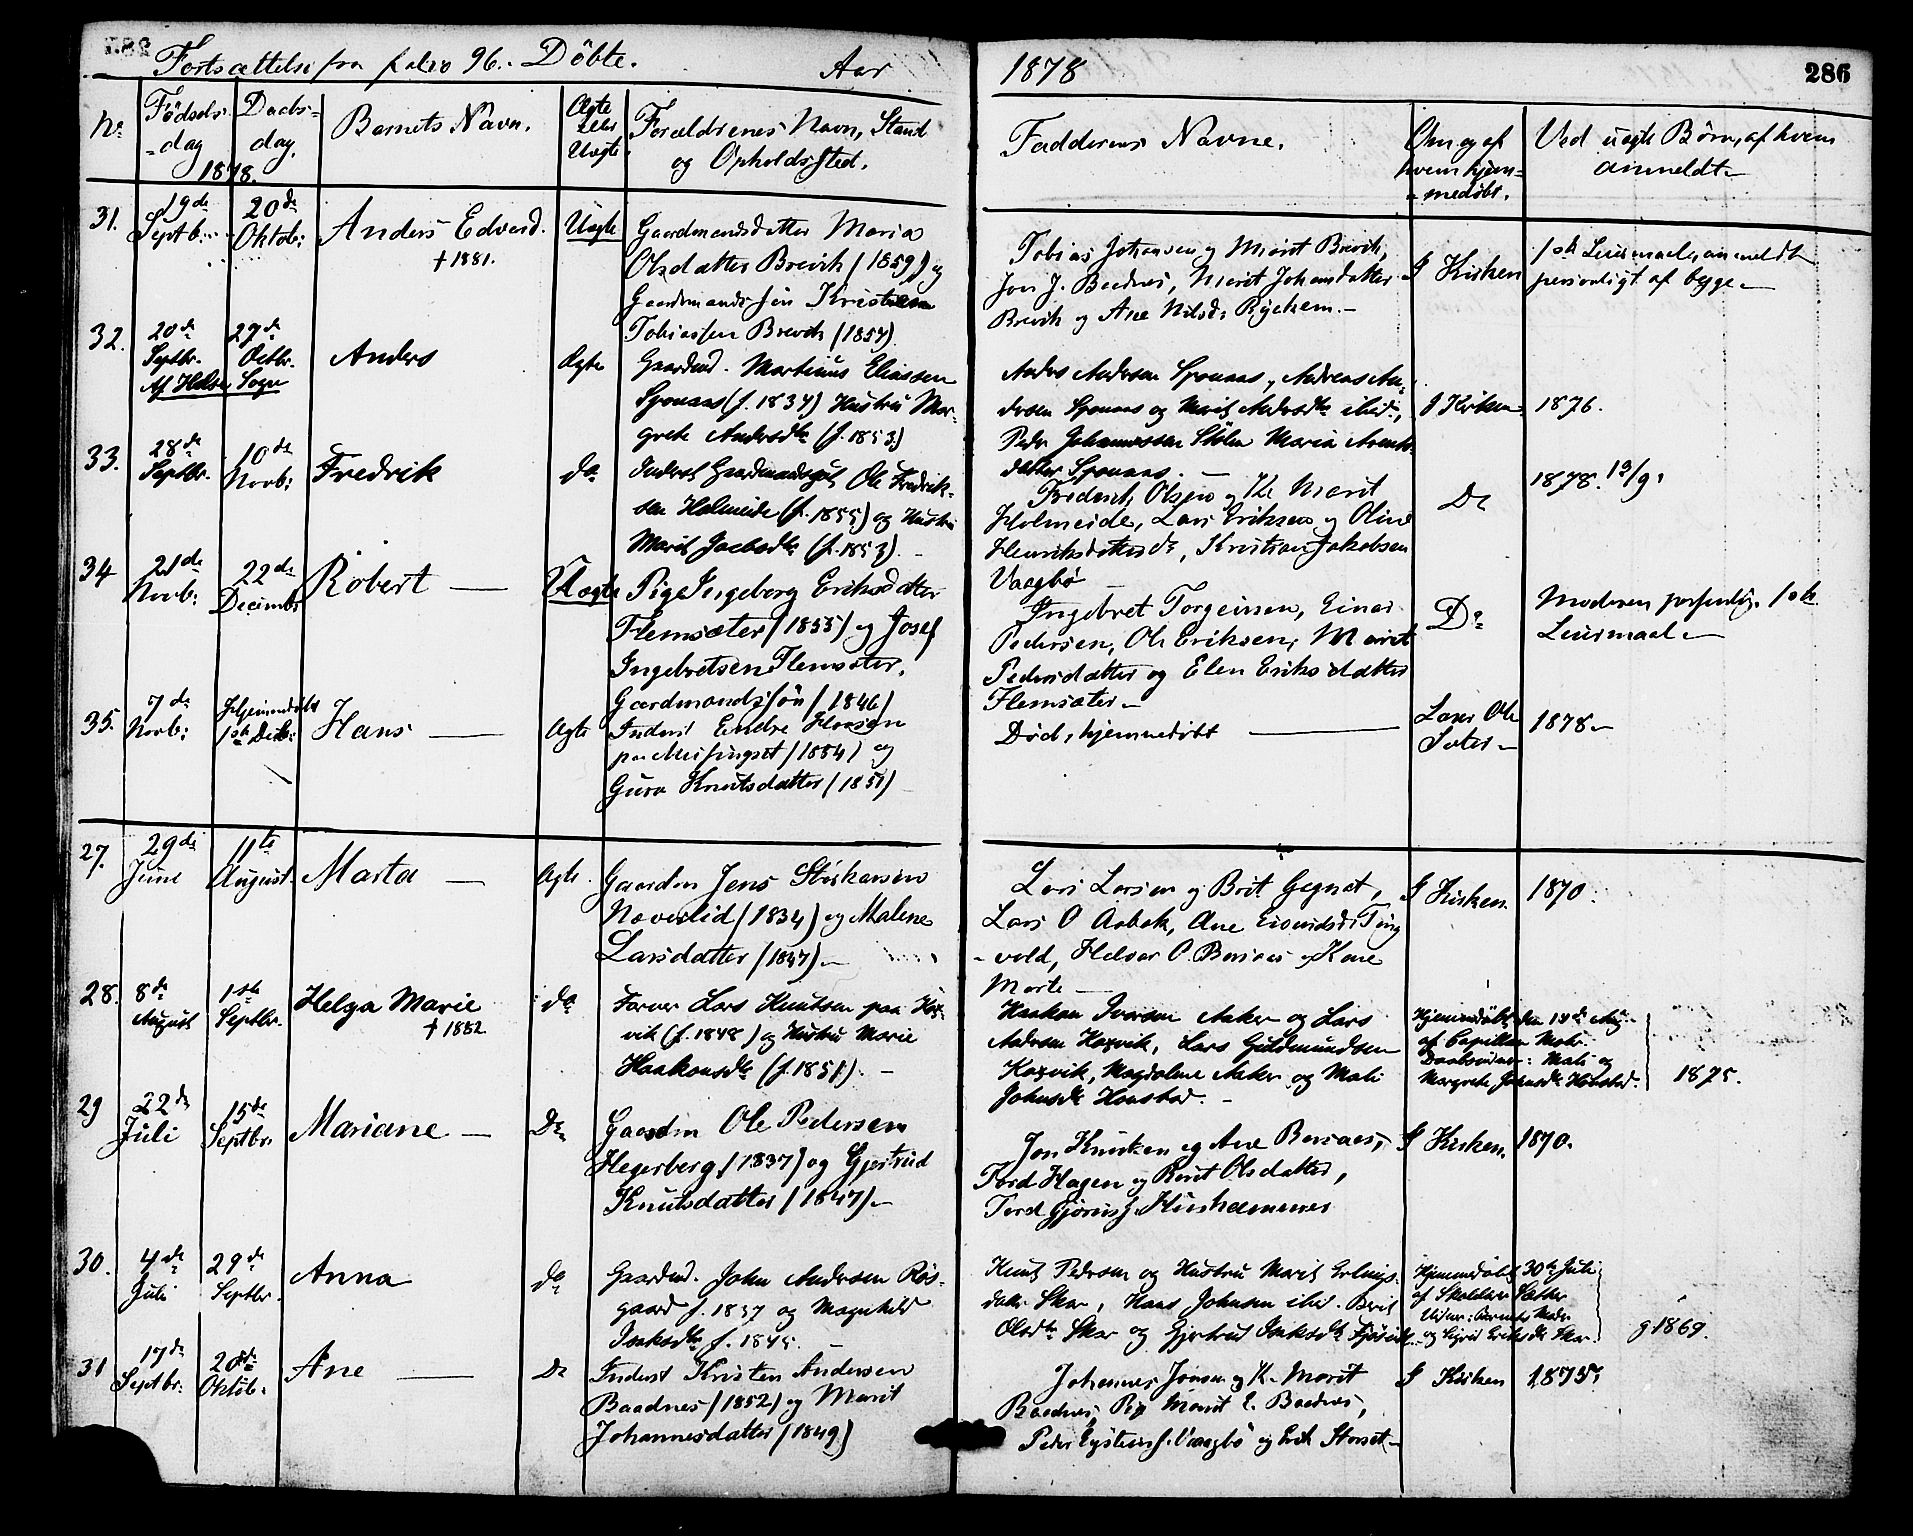 Fortsættelse fra folio 96. Döbte. Aar 1878 286
No Födsels- dag 1878. Daabs- dag. Barnets Navn. Ægte eller Uægte. Forældrenes Navn, Stand og Opholdssted. Faddernes Navne. Om og af hvem hjem- medöbt. Ved uægte Börn, af hvem anmeldt
31. 19de Septb: 20de Oktob: Anders Edvard. † 1881. Uægte Gaardmandsdatter Maria
Olsdatter Brevik (1859) og
Gaardmandssön Kristian
Tobiassen Brevik (1854).
Tobias Johansen og Marit Brevik,
Jon J. Baadnes, Marit Johansdatter
Brevik og Ane Nilsd:
I Kirken
1ste Leiermaal, anmeldt
personligt af begge.
32. 20de Septbr. 27de Octbr. Af Halse Sogn Anders Ægte Gaardmd. Martinus Eliassen
(f. 1834) Hustru Mar-
grete Andersdtr (f. 1853.)
Anders Andersen , Andreas An-
dersen og Marit Andersdtr ibid.,
Peder Johannessen Maria Arents-
datter
I Kirken 1876.
33. 28de Septbr. 10de Novb: Fredrik do Inderst Ole Fredrik-
sen Holmeide (f. 1855) og Hustru
Marit Jacobsdtr (f. 1853).
Frederik Olsen og K. Marit
Holmeide, Lars Eriksen og Oline
Henriksdatter do, Kristian Jakobsen
Vaagbö
Do 1878. 13/9.
34 21de Novb: 22de Decembr Robert Uægte Pige Ingeborg Eriksdatter
Flemsæter (1855) og Josef
Ingebretsen Flemsæter,
Gaardmandssön (1846)
Ingebret Torgeirsen, Einar
Pedersen, Ole Eriksen, Marit
Pedersdatter og Elen Eriksdatter
Flemsæter
Do
Moderen personlig. 1ste
Leiermaal
35. 7de Novb: Hjemmedöbt 1ste Decb: Hans Ægte Inderst Endre Hansen
paa Meisingset (1854) og
Guro Knutsdatter (1851)
Död, hjemmedöbt
Lars Ole
1878
27. 29de Juni 11te August. Marta Ægte. Gaardm Jens Styrkarsen
Næverlid (1834) og Malene
Larsdatter (1847)
Lars Larsen og Brit Gegnat,
Lars O Aarbak, Ane Ting
vold, Halvor O. og Kone
Marte
I Kirken. 1870.
28. 8de August 1ste Septbr. Helga Marie † 1882 do Farver Lars Knutsen paa Kox-
vik (f. 1848) og Hustru Marie
Haakonsdtr (f. 1851).
Haakon Iversen Aaker og Lars
Andersen Koxvik, Lars Guldmundsen
Koxvik, Magdalene Aaker og Mali
Johnsdtr Honstad.
Hjemmedöbt den 14de Aug
af Capellan
Daabsvidner: Mali og
Margrete Johnsdtr Honstad. 1875.
29 22de Juli 15de Septbr. Mariane Do Gaardm Ole Pedersen
Hegerberg (1837) og Gjertrud
Knutsdatter (1847)
Jon Knutsen og Ane
Tord Hagen og Beret Olsdatter,
Tord
I Kirken. 1870.
30. 4de Juli 29de Septbr. Anna do Gaardmd. John Andersen Rös-
gaard f. 1837 og Magnhild
Isaksdtr f. 1845.
Knut Pedersen og Hustru Marit Erlings-
datter Skar, Hans Johnsen ibid. Berit
Olsdtr Skar og Gjertrud Isaksdtr
Hjemmedöbt 30te Juli
af Skolelærer Sætter
Vidner: Barnets Moder
og Sigrid Eriksdtr Skar. g 1869.
31 17de Septbr: 20de Oktob: Ane Do Inderst Kristen Andersen
Baadnes (1852) og Marit
Johannesdatter (1849)
Johannes Jonsen og K. Marit
Baadnes, Pig. Marit E. Baadnes,
Peder Vaagbö og Erik Storset
I Kirken 1875.